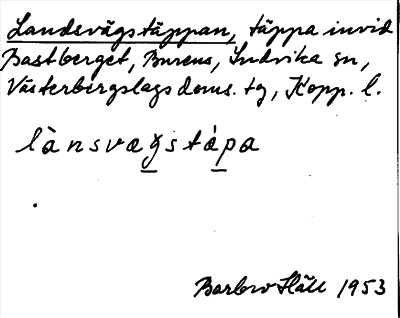 Landsvägstäppan, täppa invid
Bastberget, Burens, Ludvika sn,
Västerbergslags doms. tg, Kopp. l.
lànsvægstápa
Barbro Häll 1953